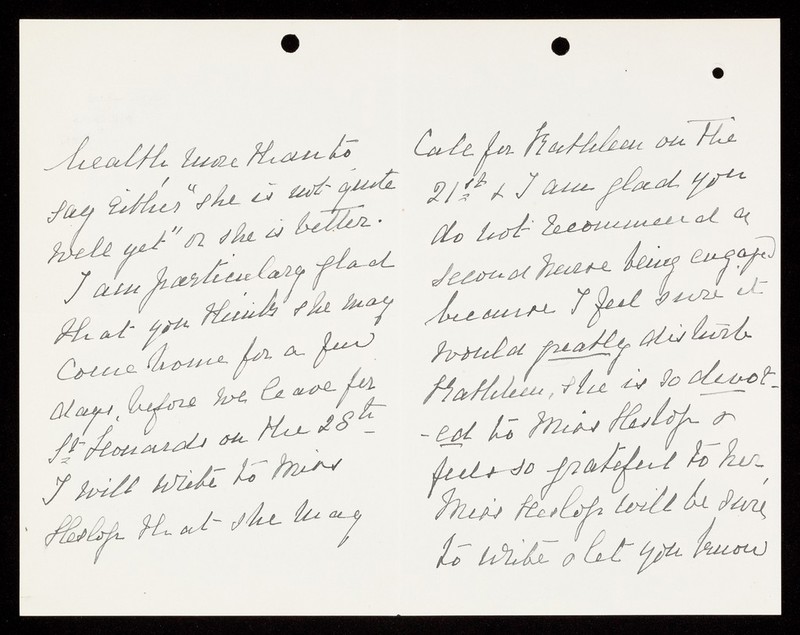 health more than to
say either "she is not quite
well yet" or she is better.
I am particulary glad
that you think she may
come home for a few
days, before we leave for
St Leonards on the 28th
I will write to Miss
Heslop that she may
call for Kathleen on the
21st & I am glad you
do not recommend a
second nurse being engaged
because I feel sure it
would greatly disturb
Kathleen, she is so devot-
-ed to Miss Heslop &
feels so grateful to her,
Miss Heslop will be sure,
to write & let you know